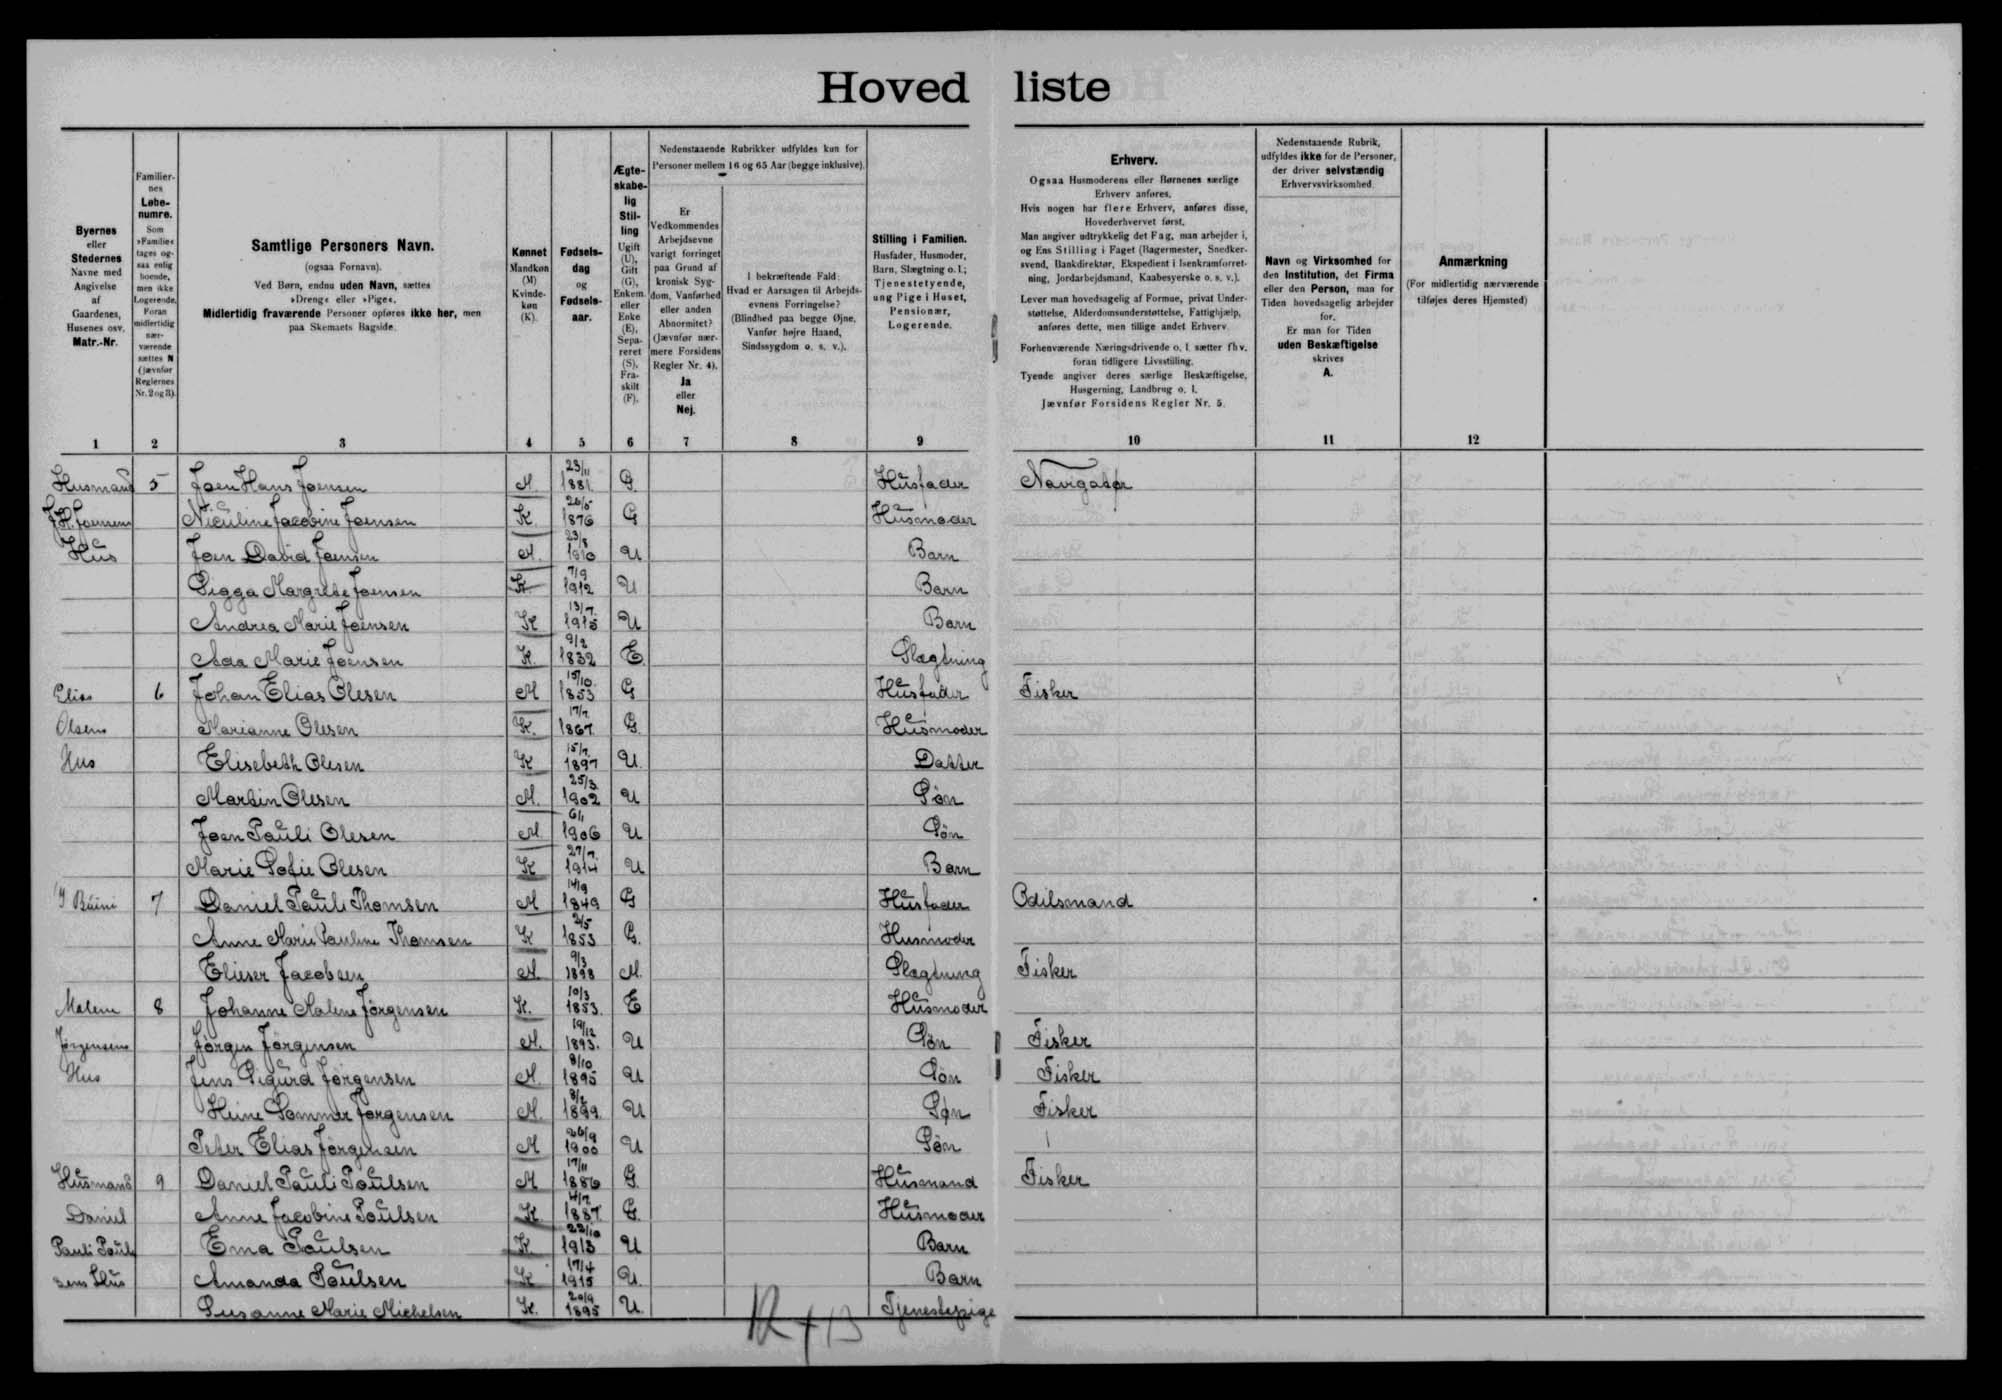 Hovedliste
Byernes eller Stedernes Navne med Angivelse af Gaardenes, Husenes osv. Matr.-Nr.
Familiernes Løbenumre. Som »Familie« tages ogsaa enlig boende, men ikke Logerende. Foran midlertidig nærværende sættes N (jævnfør Reglernes Nr. 2 og 3).
Samtlige Personers Navn.
(ogsaa Fornavn).
Ved Børn, endnu uden Navn, sættes »Dreng« eller »Pige«.
Midlertidig fraværende Personer opføres ikke her, men paa Skemaets Bagside.
Kønnet Mandkøn (M) Kvindekøn (K).
Fødselsdag og Fødselsaar.
Ægteskabelig Stilling Ugift (U), Gift (G), Enkem. eller Enke (E), Separeret (S), Fraskilt (F).
Nedenstaaende Rubrikker udfyldes kun for Personer mellem 16 og 65 Aar (begge inklusive).
Er Vedkommendes Arbejdsevne varigt forringet paa Grund af kronisk Sygdom, Vanførhed eller anden Abnormitet? (Jævnfør nærmere Forsidens Regler Nr. 4). Ja eller Nej.
I bekræftende Fald: Hvad er Aarsagen til Arbejdsevnens Forringelse? (Blindhed paa begge Øjne, Vanfør højre Haand, Sindssygdom o. s. v.).
Stilling i Familien. Husfader, Husmoder, Barn, Slægtning o. l.; Tjenestetyende, ung Pige i Huset, Pensionær, Logerende.
Erhverv.
Ogsaa Husmoderens eller Børnenes særlige Erhverv anføres.
Hvis nogen har flere Erhverv, anføres disse, Hovederhvervet først.
Man angiver udtrykkelig det Fag, man arbejder i, og Ens Stilling i Faget (Bagermester, Snedkersvend, Bankdirektør, Ekspedient i Isenkramforretning, Jordarbejdsmand, Kaabesyerske o. s. v.).
Lever man hovedsagelig af Formue, privat Understøttelse, Alderdomsunderstøttelse, Fattighjælp, anføres dette, men tillige andet Erhverv.
Forhenværende Næringsdrivende o. l. sætter fhv. foran tidligere Livsstilling.
Tyende angiver deres særlige Beskæftigelse, Husgerning, Landbrug o. l.
Jævnfør Forsidens Regler Nr. 5.
Nedenstaaende Rubrik, udfyldes ikke for de Personer, der driver selvstændig Erhvervsvirksomhed.
Navn og Virksomhed for den Institution, det Firma eller den Person, man for Tiden hovedsagelig arbejder for.
Er man for Tiden uden Beskæftigelse skrives A.
Anmærkning
(For midlertidig nærværende tilføjes deres Hjemsted)
1 2 3 4 5 6 7 8 9 10 11 12
Husmand 5 Joen Hans Joensen M. 23/11 1881. G. Husfader Navigatør
J.H. Joensens Niculine Jacobine Joensen K. 26/5 1876 G Husmoder
Hus Joen David Joensen M. 23/8 1910 U Barn
Sigga Margrete Joensen K 7/9 1912 U Barn
Andrea Marie Joensen K 13/7. 1915 U Barn
Ada Marie Joensen K. 9/2 1832 E. Slægtning
Elias 6 Johan Elias Olesen M 15/10. 1853 G Husfader Fisker
Olsens Marianne Olesen K. 17/7 1867. G. Husmoder
Hus Elisebeth Olesen K 15/7. 1897 U. Datter
Martin Olesen M. 25/3 1902 U Søn
Joen Pauli Olesen M. 6/1 1906 U Søn
Marie Sofie Olesen K 27/7. 1914 U Barn
7 Daniel Pauli Thomsen M 14/9 1849 G Husfader Odilsmand
Anne Marie Pauline Thomsen K 2/5 1853 G. Husmoder
Elieser Jacobsen M 9/3 1898 M. Slægtning Fisker
Malene 8 Johanne Malene Jörgensen K. 10/3 1853. E Husmoder
Jørgensens Jörgen Jörgensen M. 19/12 1893. U Søn Fisker
Hus Jens Sigurd Jörgensen M. 8/10 1895 U Søn Fisker
Heine Sommer Jørgensen M. 8/2 1899. U Søn Fisker
Peter Elias Jörgensen M 26/9 1900 U Søn
Husmand 9 Daniel Pauli Poulsen M 17/11 1886 G. Husmand Fisker
Daniel Anne Jacobine Poulsen K 4/7 1887. G. Husmoder
Pauli Poul Ema Poulsen K. 22/10 1913 U Barn
sens Hus Amanda Poulsen K 17/4 1915 U. Barn
Susanne Marie Michelsen K. 20/9 1895 U. Tjenestepige
12+13